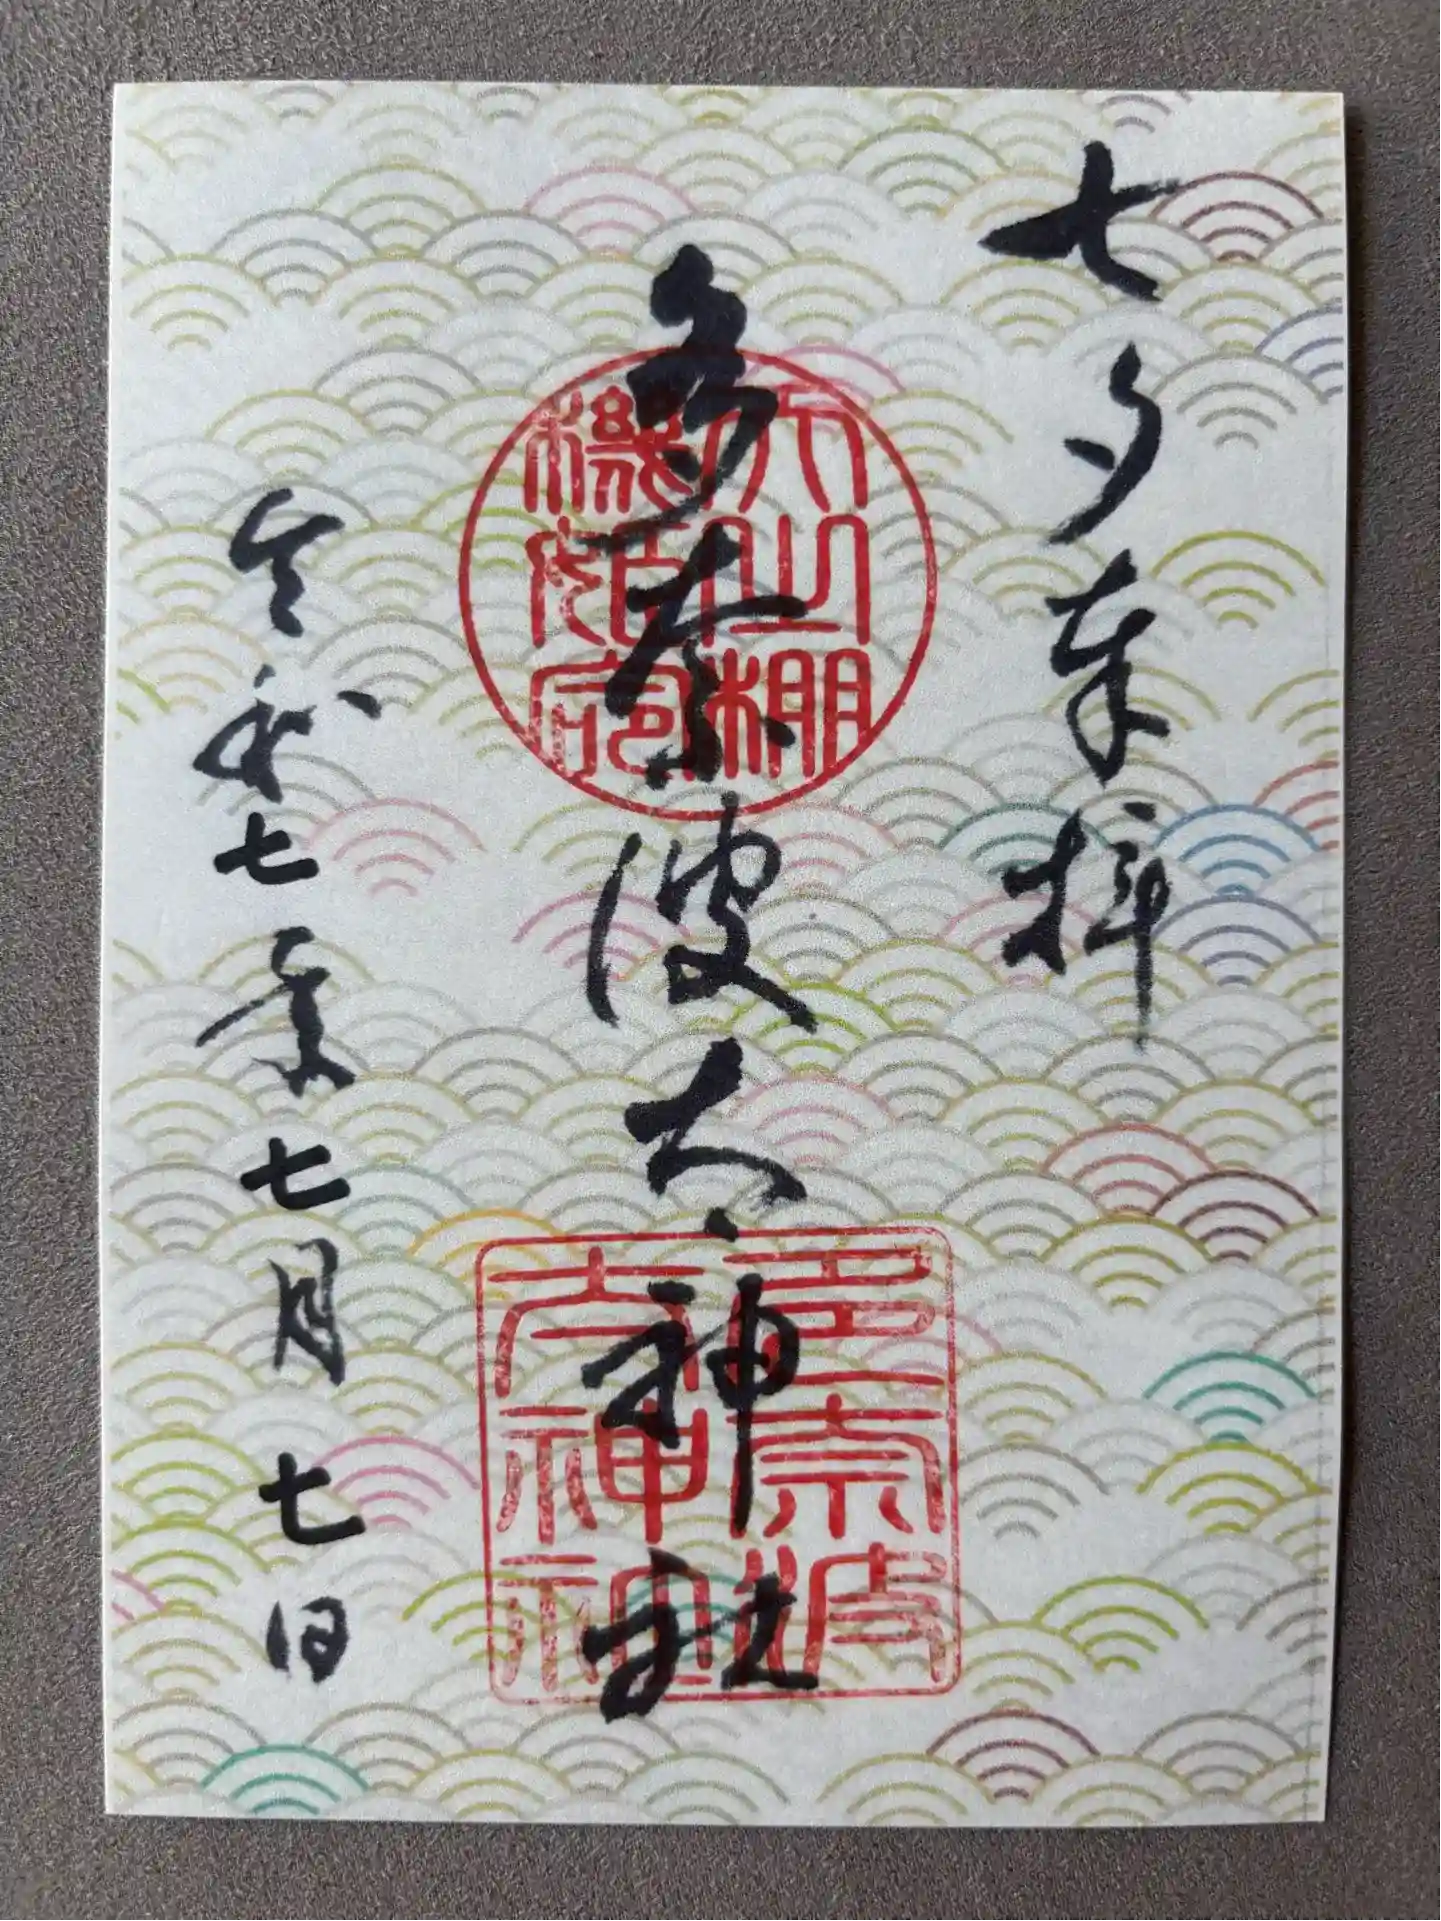 七夕奉拝
多奈波太神社
天之棚
機姫命
多奈波
太神社
令和七年七月七日